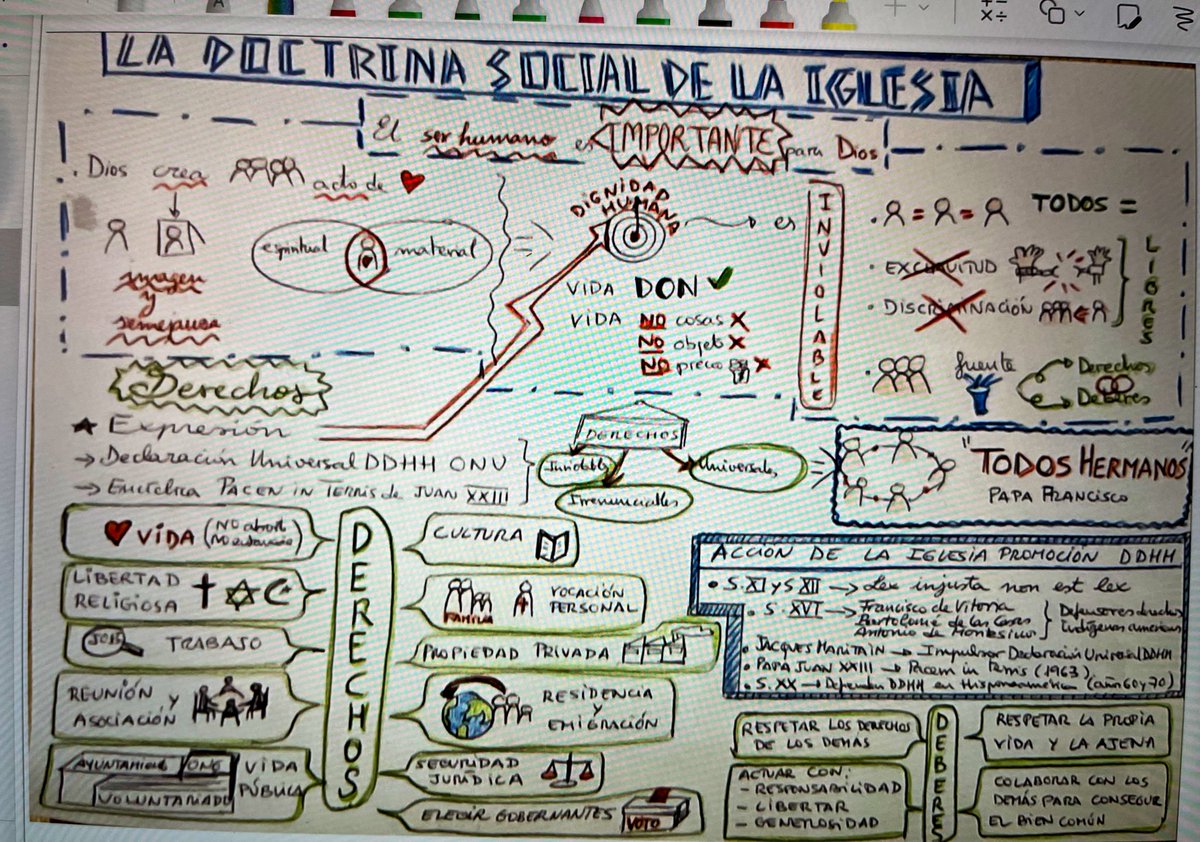 LA DOCTRINA SOCIAL DE LA IGLESIA
El ser humano es IMPORTANTE para Dios
. Dios crea
acto de
imagen
y
semejausa
espiritual
material
DIGNIDAD
HUMANA
es
INVIOLABLE
VIDA DON
VIDA NO cosas X
NO objeto X
NO precio X
TODOS =
. = =
. EXCLAVITUD
. DISCRIMINACIÓN
LIBRES
. fuente
Derechos
Deberes
Derechos
★ Expresión
→ Declaración Universal DDHH ONU
→ Encíclica PACEN in TERRIS de JUAN XXIII
DERECHOS
Universales
Irrenunciables
"TODOS HERMANOS"
PAPA FRANCISCO
DERECHOS
VIDA (NO abort
NO eutanasia)
LIBERTAD
RELIGIOSA
JOBS
TRABAJO
REUNIÓN Y
ASOCIACIÓN
AYUNTAMIENTO ONG
VOLUNTARIADO
VIDA
PÚBLICA
CULTURA
FAMILIA
VOCACIÓN
PERSONAL
PROPIEDAD PRIVADA
RESIDENCIA
Y
EMIGRACIÓN
SEGURIDAD
JURÍDICA
ELEGIR GOBERNANTES
VOTO
ACCIÓN DE LA IGLESIA PROMOCIÓN DDHH
• S. XI y S XII → Lex injusta non est lex
• S. XVI → Francisco de Vitoria
Bartolomé de las Casas
Antonio de Montesinos
Defensores derechos
indígenas americanos
• JACQUES MARITAIN → Impulsor Declaración Universal DDHH
• PAPA JUAN XXIII → Pacem in Terris (1963)
• S. XX → Defienden DDHH en Hispanoamérica (años 60 y 70)
DEBERES
RESPETAR LOS DERECHOS
DE LOS DEMÁS
ACTUAR CON:
- RESPONSABILIDAD
- LIBERTAR
- GENEROSIDAD
RESPETAR LA PROPIA
VIDA Y LA AJENA
COLABORAR CON LOS
DEMÁS PARA CONSEGUIR
EL BIEN COMÚN